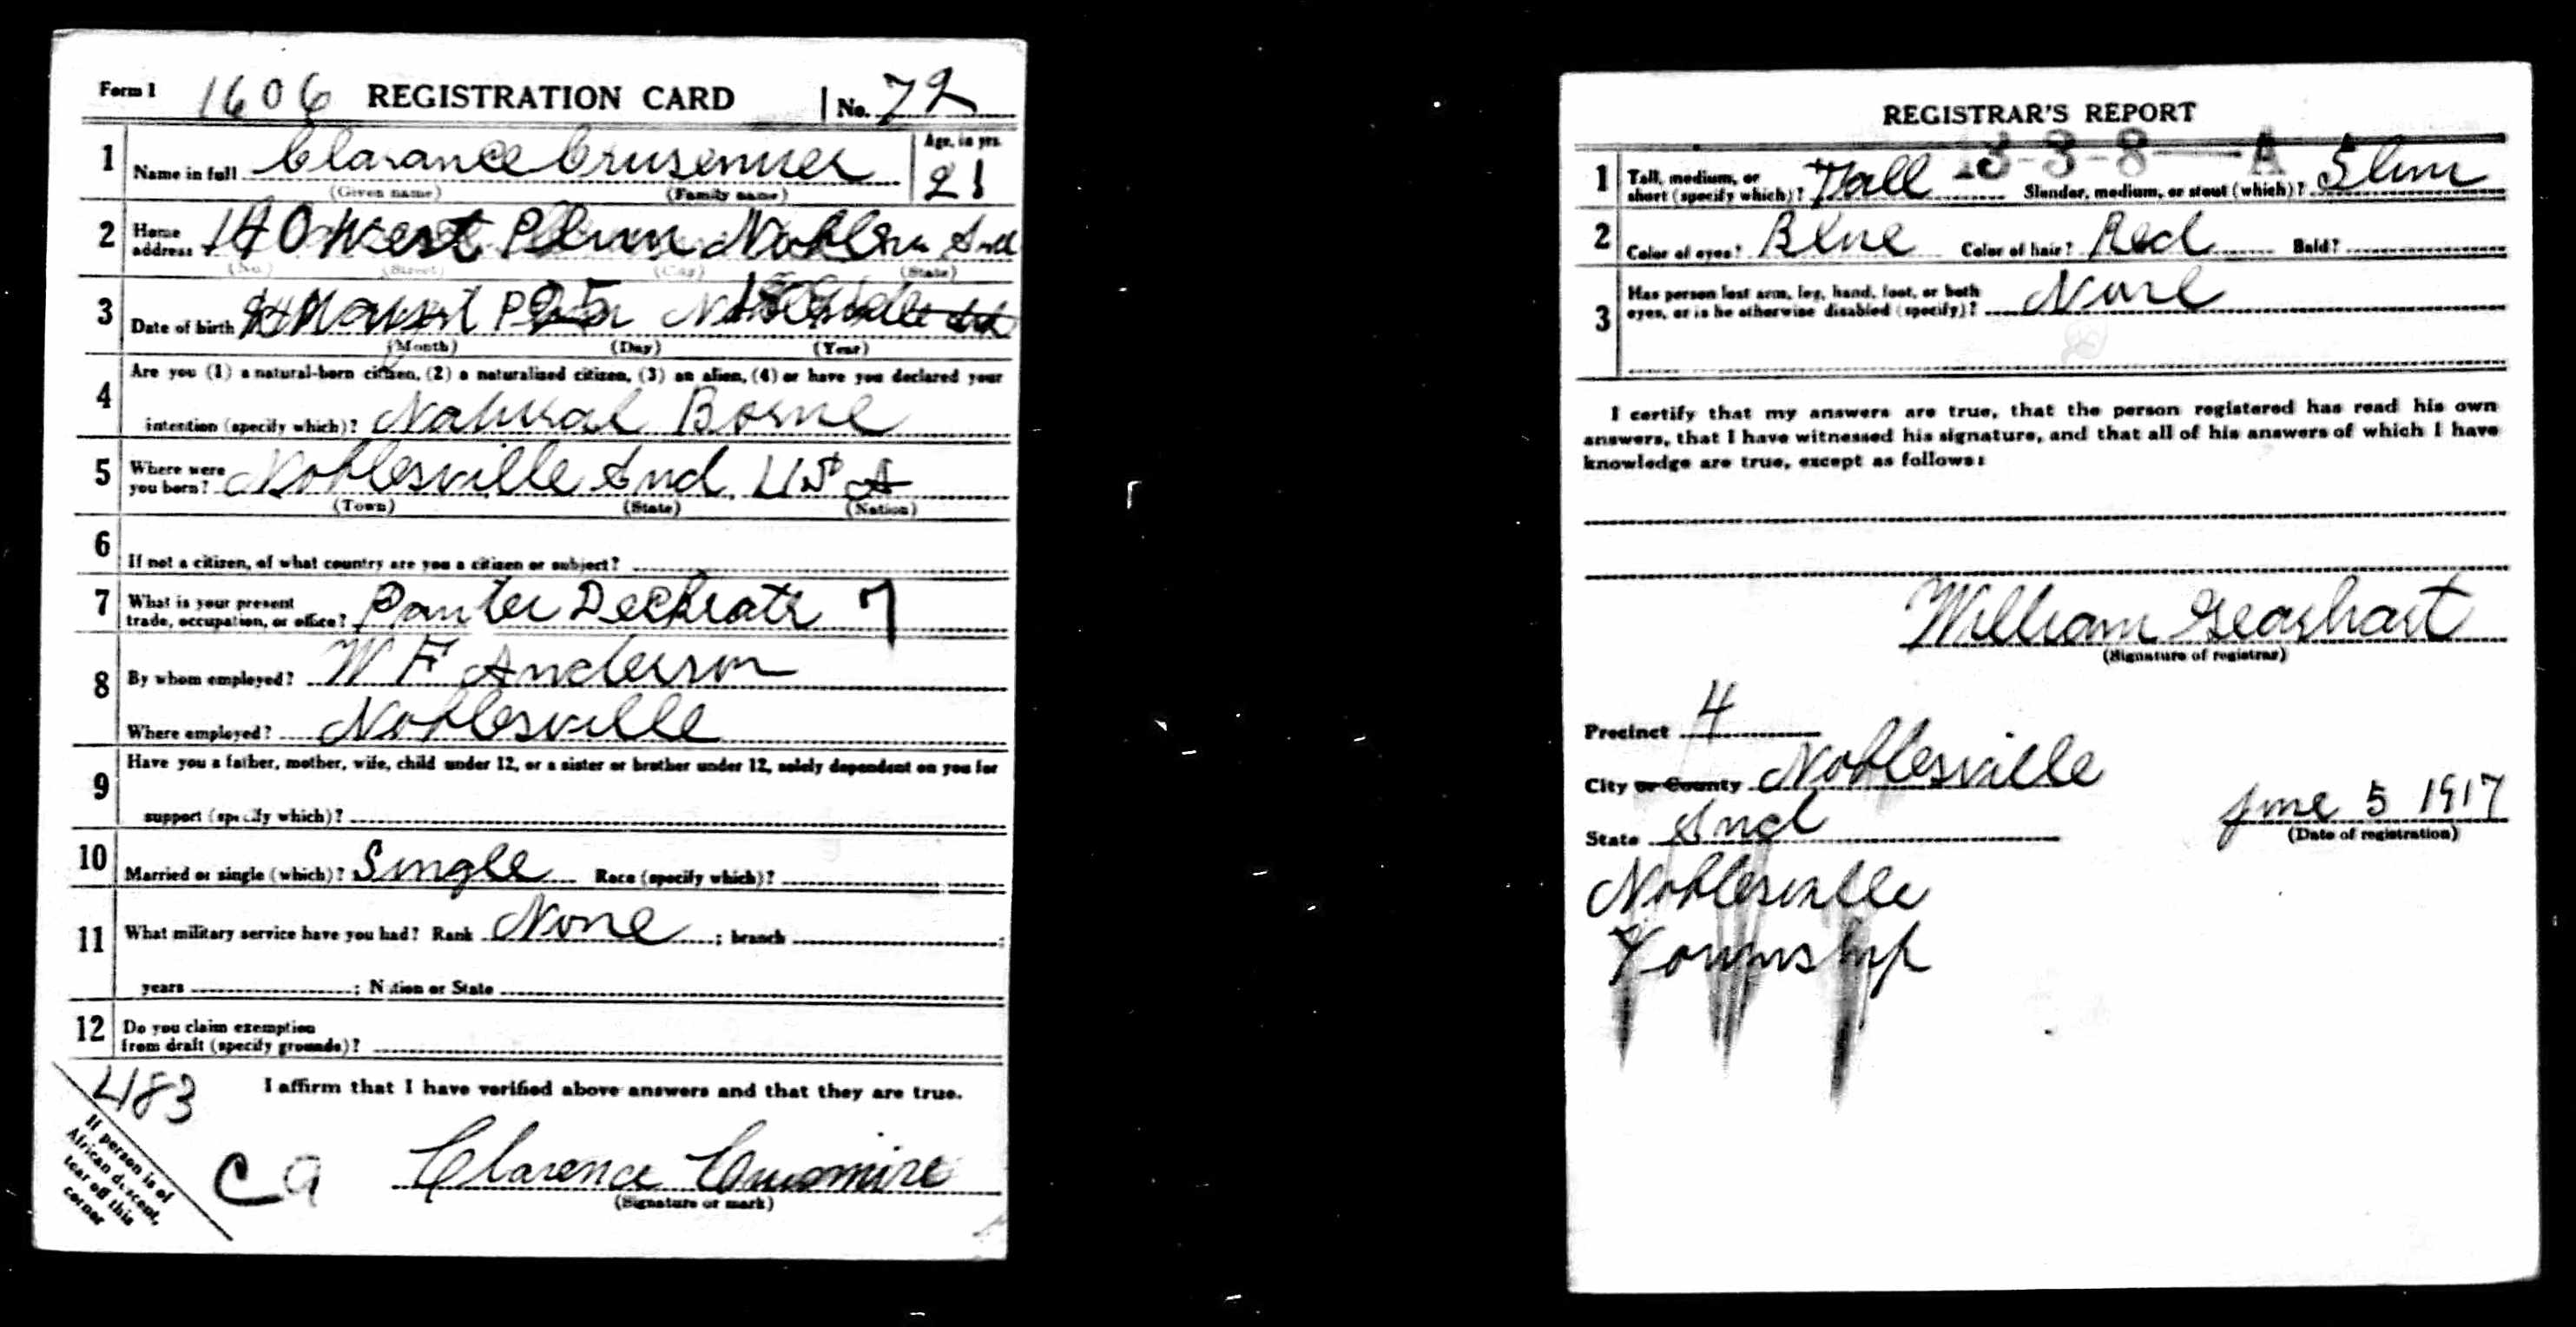 Form 1 1606 REGISTRATION CARD No. 72
1 Name in full Clarance Crusenmier Age, in yrs. 21
(Given name) (Family name)
2 Home address 140 West Plum Nobles Ind
(No.) (Street) (City) (State)
3 Date of birth 25
(Month) (Day) (Year)
4 Are you (1) a natural-born citizen, (2) a naturalized citizen, (3) an alien, (4) or have you declared your
intention (specify which)? Natural Borne
5 Where were you born? Noblesville Ind USA
(Town) (State) (Nation)
6 If not a citizen, of what country are you a citizen or subject?
7 What is your present trade, occupation, or office? Panter 7
8 By whom employed? W F Anderson
Where employed? Noblesville
9 Have you a father, mother, wife, child under 12, or a sister or brother under 12, solely dependent on you for
support (specify which)?
10 Married or single (which)? Single Race (specify which)?
11 What military service have you had? Rank None ; branch ;
years ; Nation or State
12 Do you claim exemption
from draft (specify grounds)?
483 I affirm that I have verified above answers and that they are true.
If person is of
African descent,
tear off this
corner
Clarence
(Signature or mark)
REGISTRAR'S REPORT
13-3-8-A
1 Tall, medium, or short (specify which)? Tall Slender, medium, or stout (which)? Slim
2 Color of eyes? Blue Color of hair? Red Bald?
3 Has person lost arm, leg, hand, foot, or both
eyes, or is he otherwise disabled (specify)? None
I certify that my answers are true, that the person registered has read his own
answers, that I have witnessed his signature, and that all of his answers of which I have
knowledge are true, except as follows:
William Gearhart
(Signature of registrar)
Precinct 4
City or County Noblesville
State Ind
June 5 1917
(Date of registration)
Noblesville
Township